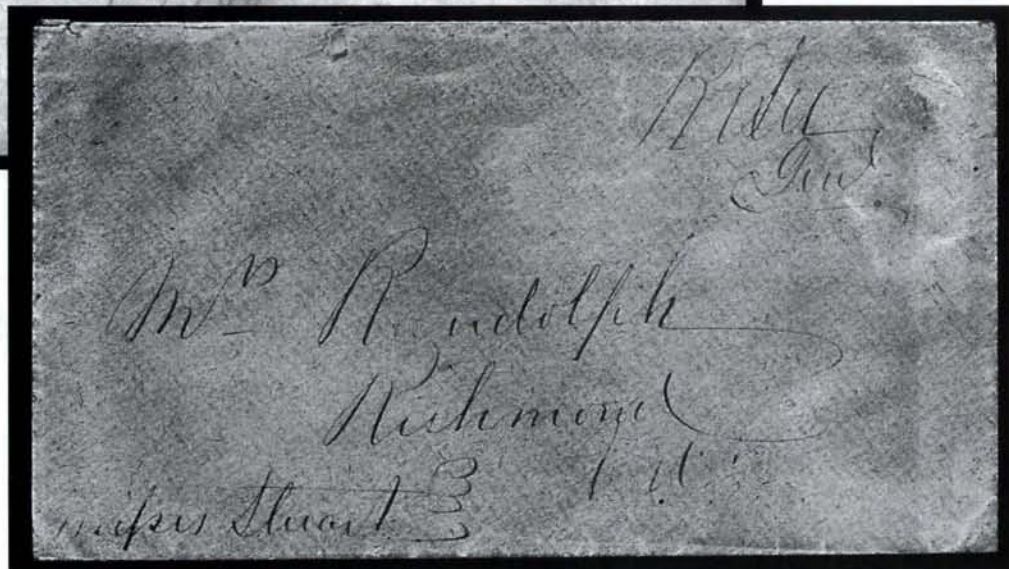 R E Lee
Genl
Mrs Randolph
Richmond
misses Stuart